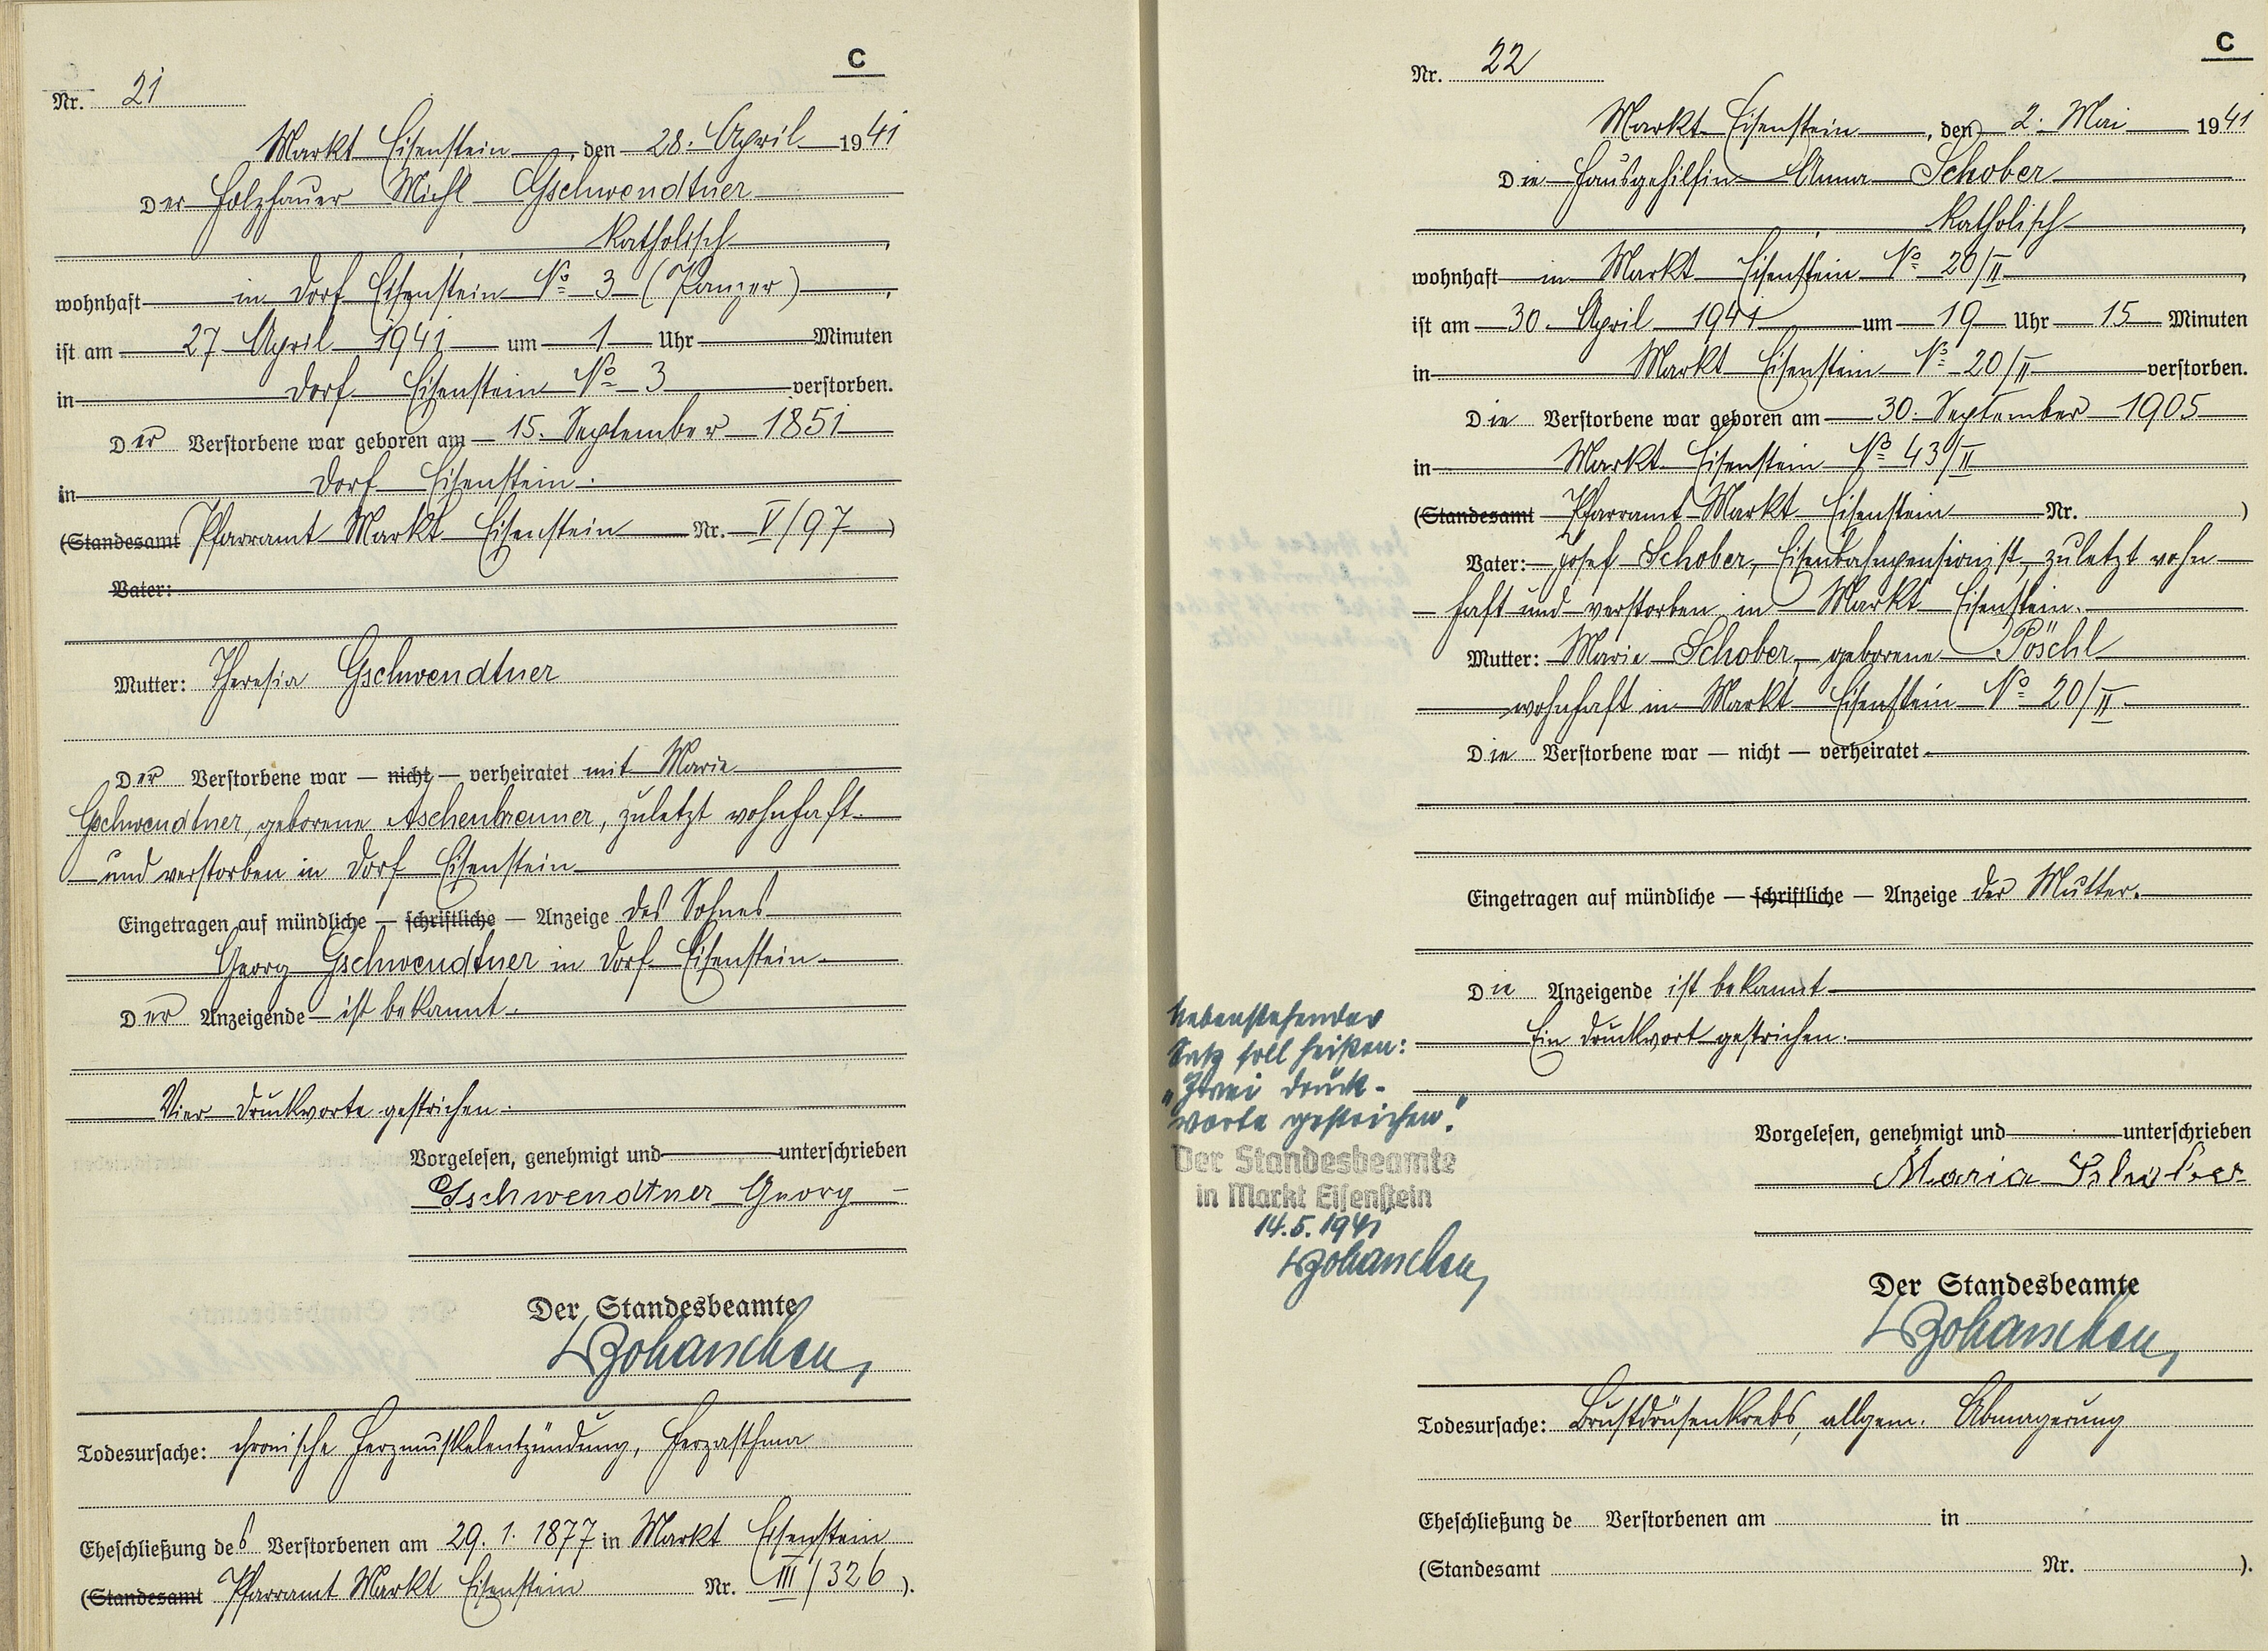 C
Nr. 21
Markt Eisenstein, den 28. April 1941
Der Holzhauer Michl Gschwendtner
katholisch,
wohnhaft in Dorf Eisenstein No 3 (Panzer),
ist am 27. April 1941 um 1 Uhr Minuten
in Dorf Eisenstein No 3 verstorben.
Der Verstorbene war geboren am 15. September 1851
in Dorf Eisenstein.
(Standesamt Pfarramt Markt Eisenstein Nr. V/97)
Vater:
Mutter: Theresia Gschwendtner
Der Verstorbene war — nicht — verheiratet mit Marie
Gschwendtner, geborene Aschenbrenner, zuletzt wohnhaft
und verstorben in Dorf Eisenstein
Eingetragen auf mündliche — schriftliche — Anzeige des Sohnes
Georg Gschwendtner in Dorf Eisenstein.
Der Anzeigende ist bekannt.
Vier Druckworte gestrichen.
Vorgelesen, genehmigt und unterschrieben
Gschwendtner Georg
Der Standesbeamte
Todesursache: chronische Herzmuskelentzündung, Herzasthma
Eheschließung des Verstorbenen am 29. 1. 1877 in Markt Eisenstein
(Standesamt Pfarramt Markt Eisenstein Nr. III/326).
C
Nr. 22
Markt Eisenstein, den 2. Mai 1941
Die Hausgehilfin Anna Schober
katholisch,
wohnhaft in Markt Eisenstein No 20/II,
ist am 30. April 1941 um 19 Uhr 15 Minuten
in Markt Eisenstein No 20/II verstorben.
Die Verstorbene war geboren am 30. September 1905
in Markt Eisenstein No 43/II
(Standesamt Pfarramt Markt Eisenstein Nr. )
Vater: Josef Schober, Eisenbahnpensionist, zuletzt wohn-
haft und verstorben in Markt Eisenstein.
Mutter: Marie Schober, geborene Pöschl
wohnhaft in Markt Eisenstein No 20/II.
Die Verstorbene war — nicht — verheiratet
Eingetragen auf mündliche — schriftliche — Anzeige der Mutter.
Die Anzeigende ist bekannt
Ein Druckwort gestrichen.
Nebenstehender
Satz soll heißen:
"Zwei Druck-
worte gestrichen."
Der Standesbeamte
in Markt Eisenstein
14.5.1941
Vorgelesen, genehmigt und unterschrieben
Maria Schober
Der Standesbeamte
Todesursache: Brustdrüsenkrebs, allgem. Abmagerung
Eheschließung de Verstorbenen am in
(Standesamt Nr. ).